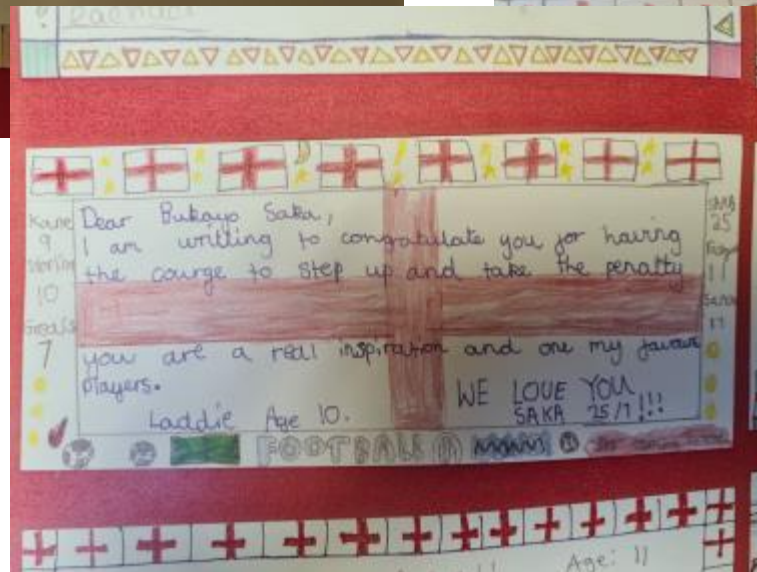 Rachael
Kane
9
Sterling
10
Goals
7
Dear Bukayo Saka,
I am writting to congatulate you for having
the courge to step up and take the penalty
you are a real inspiration and one my favour
players.
Laddie Age 10.
WE LOVE YOU
SAKA 25/7!!!
Saka
25
11
17
FOOTBALL
Age: 11